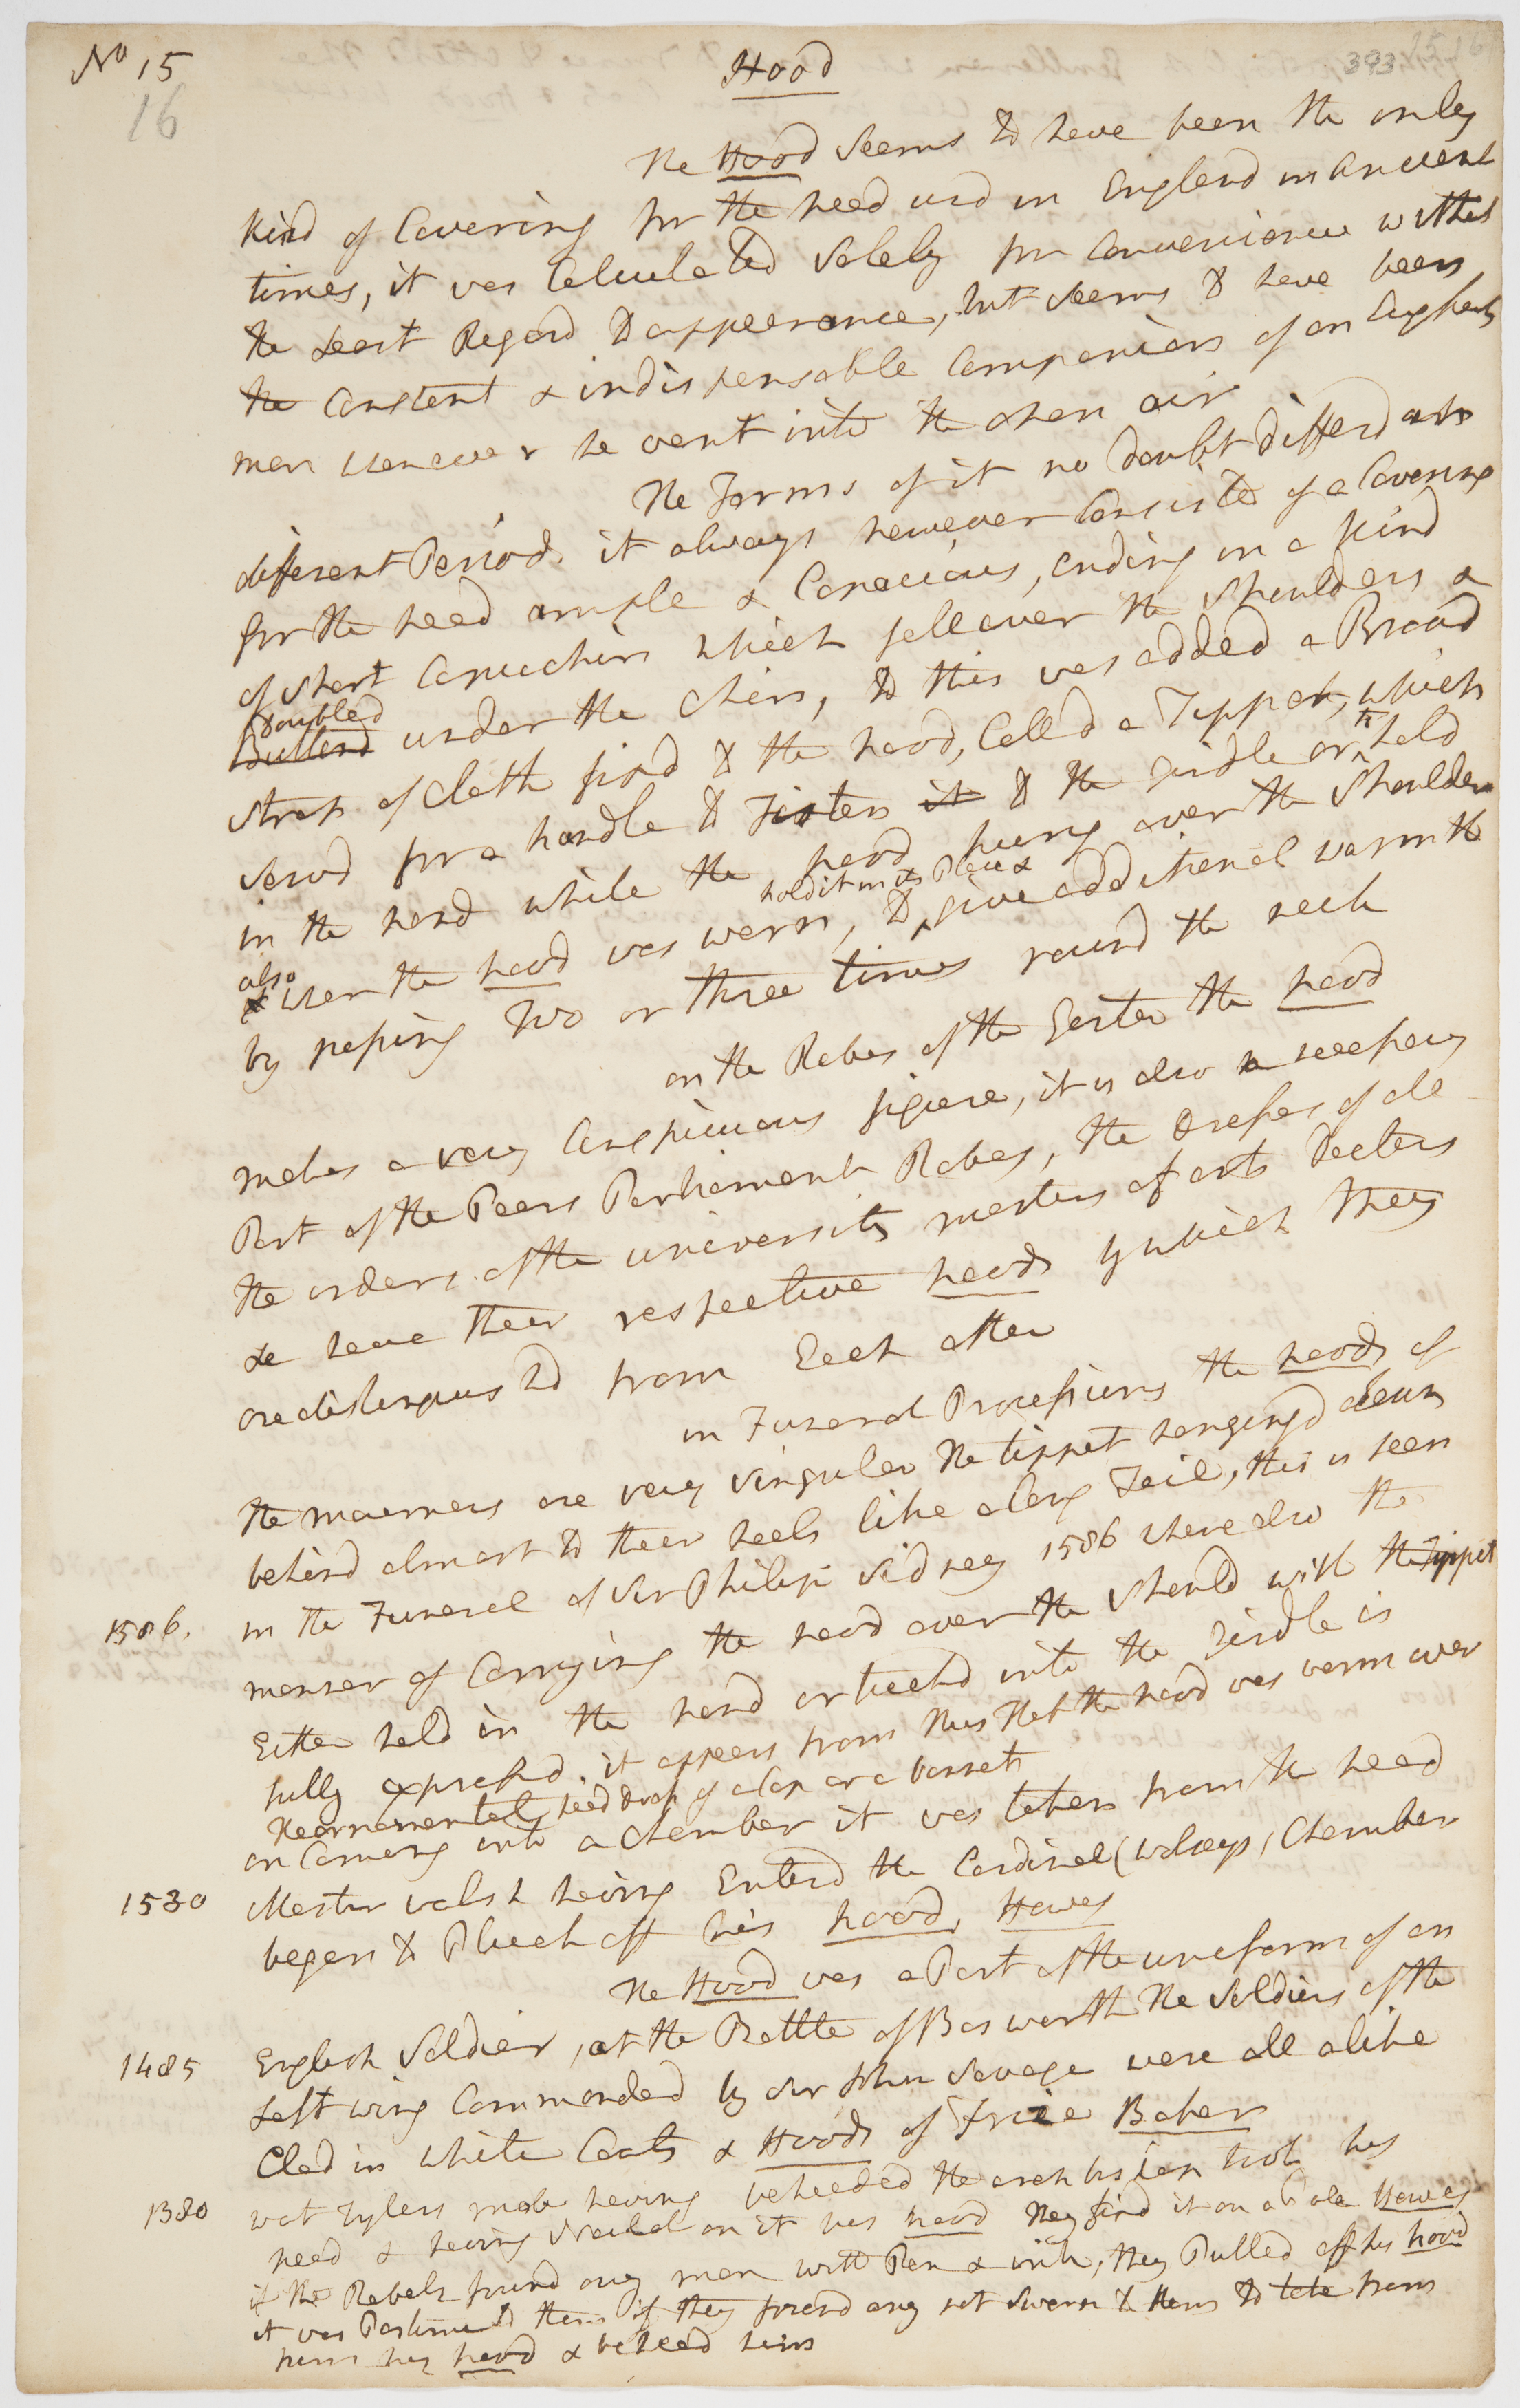 No 15
16
393
Hood
The Hood seems to have been the only
kind of Covering for the head usd in England in Ancient
times, it was Calculated Solely for Convenience without
the Least Regard to appeerance, but seems to have been
the Constant & indispensable Companion of an English
man whenever he went into the open air
The Forms of it no doubt differd at
different Periods. it always however Consisted of a Covering
for the head ample & Capacious, ending in a kind
of short Capuchin which fell over the shoulders &
doubled
Buttond under the Chin, to this was added a Broad
strap of Cloth fixd to the hood, Calld a Tippet, which
servd for a handle to Fasten it to the Girdle or to hold
in the hand while the hood hung over the shoulder
hold it in its Place &
also
& when the hood was worn, to give additional warmth
by passing two or three times round the neck
on the Robes of the Garter the hood
makes a very Conspicuous figure, it is also a necessary
Part of the Peers Parliament Robes, the dresses of all
the orders of the university masters of arts Doctors
&c have their respective hoods by which they
are distinguishd from Each other
in Funeral Processions the hoods of
the mourners are very singular The tippet hanging down
behind almost to their heels like a long Tail, this is seen
1586. in the Funeral of Sir Philip Sidney 1586 where also the
manner of Carrying the hood over the should with the Tippet
Either held in the hand or tuckd into the Girdle is
fully expressd. it appears from this that the hood was worn over
the ornamental head dress of a Cap or a bonnet
on Coming into a Chamber it was taken from the head
1530 Master Walsh having Enterd the Cardinal (Wolseys) Chamber
began to Pluck off his hood, Howes
The Hood was a Part of the uniform of an
1485 English Soldier, at the Battle of Bosworth The Soldiers of the
Left wing Commanded by Sir John Savage were all alike
Clad in white Coats & Hoods of frize Baker
1380 wat Tylers mob having beheaded the archbishop took his
head & having nailed on it his hood They fixd it on a Pole Howes
if the Rebels found any man with Pen & ink, they Pulled off his hood
it was Pastime to them if they found any not sworn to them to take from
him his hood & behead him